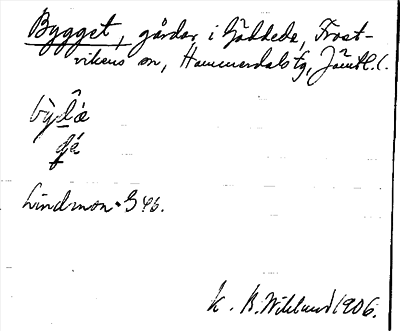 Bygget, gårdar i Gäddede, Frost-
vikens sn, Hammerdals tg, Jämtl. l.
Lindmon
K. B. Wiklund 1906.